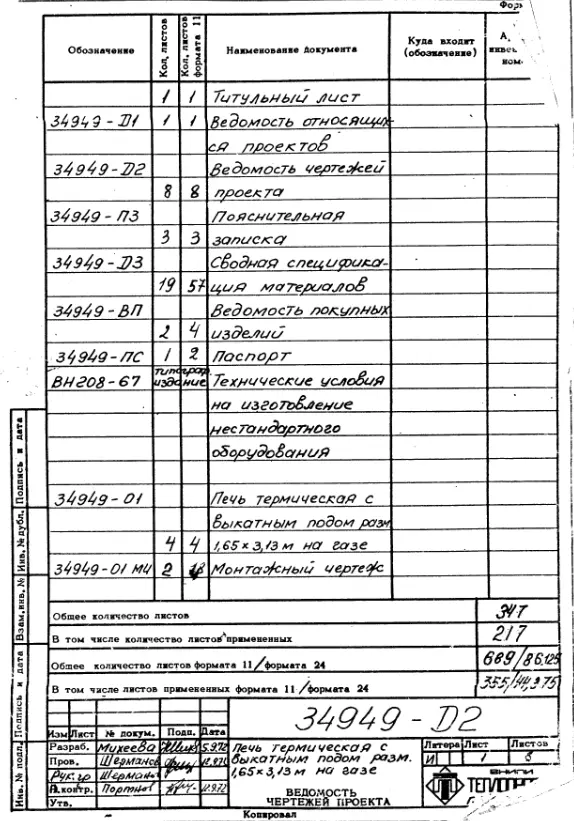 Обозначение
Кол. листов
Кол. листов формата 11
Наименование документа
Куда входит (обозначение)
1 1 Титульный лист
34949-D1 1 1 Ведомость относящих-
ся проектов
34949-D2 Ведомость чертежей
8 8 проекта
34949-ПЗ Пояснительная
3 3 записка
34949-D3 Сводная специфика-
19 57 ция материалов
34949-ВП Ведомость покупных
2 4 изделий
34949-ПС 1 2 Паспорт
ВН208-67 типограф. издание Технические условия
на изготовление
нестандартного
оборудования
34949-01 Печь термическая с
выкатным подом разм
4 4 1,65×3,13 м на газе
34949-01 МЧ 2 Монтажный чертеж
Общее количество листов 347
В том числе количество листов примененных 217
Общее количество листов формата 11/формата 24 689/86.125
В том числе листов примененных формата 11/формата 24
Инв.№ подл.
Подпись и дата
Взам.инв.№
Инв.№ дубл.
Подпись и дата
34949-D2
Изм Лист № докум. Подп. Дата
Разраб. Михеева 5.9.72
Пров. Шерманов
Рук.гр Шерманов
Н.контр. Портнов 12.9.72
Утв.
Печь термическая с
выкатным подом разм.
1,65×3,13 м на газе
ВЕДОМОСТЬ
ЧЕРТЕЖЕЙ ПРОЕКТА
Литера Лист Листов
И 1
ВНИПИ
Копировал